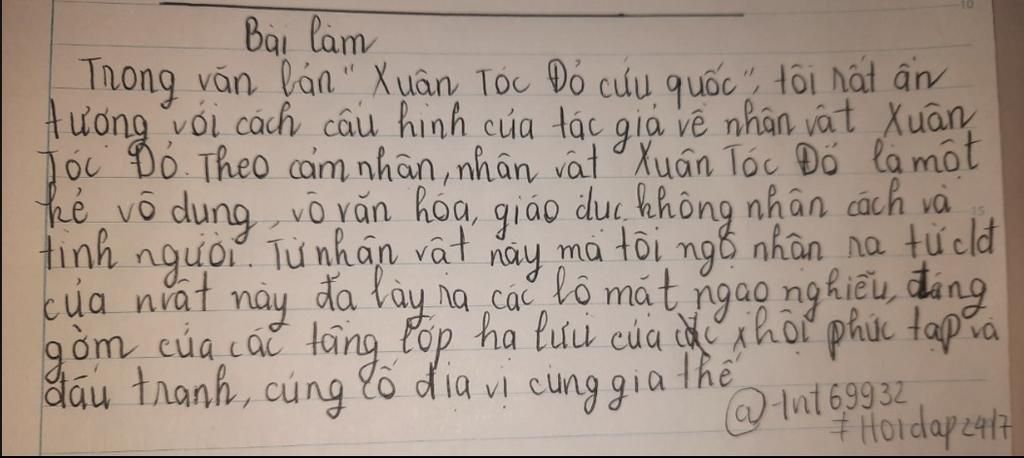 Bài làm
Trong văn bản "Xuân Tóc Đỏ cứu quốc", tôi rất ấn
tượng với cách cấu hình của tác giả về nhân vật Xuân
Tóc Đỏ. Theo cảm nhận, nhân vật Xuân Tóc Đỏ là một
kẻ vô dụng, vô văn hóa, giáo dục, không nhân cách và
tình người. Từ nhân vật này mà tôi ngộ nhận ra từ cđ
của nvật này đã lấy ra các bộ mặt ngạo nghiễu, đáng
gờm của các tầng lớp hạ lưu của xhội phức tạp và
đấu tranh, củng cố địa vị cùng gia thế
@-Int69932
# Hoidap247